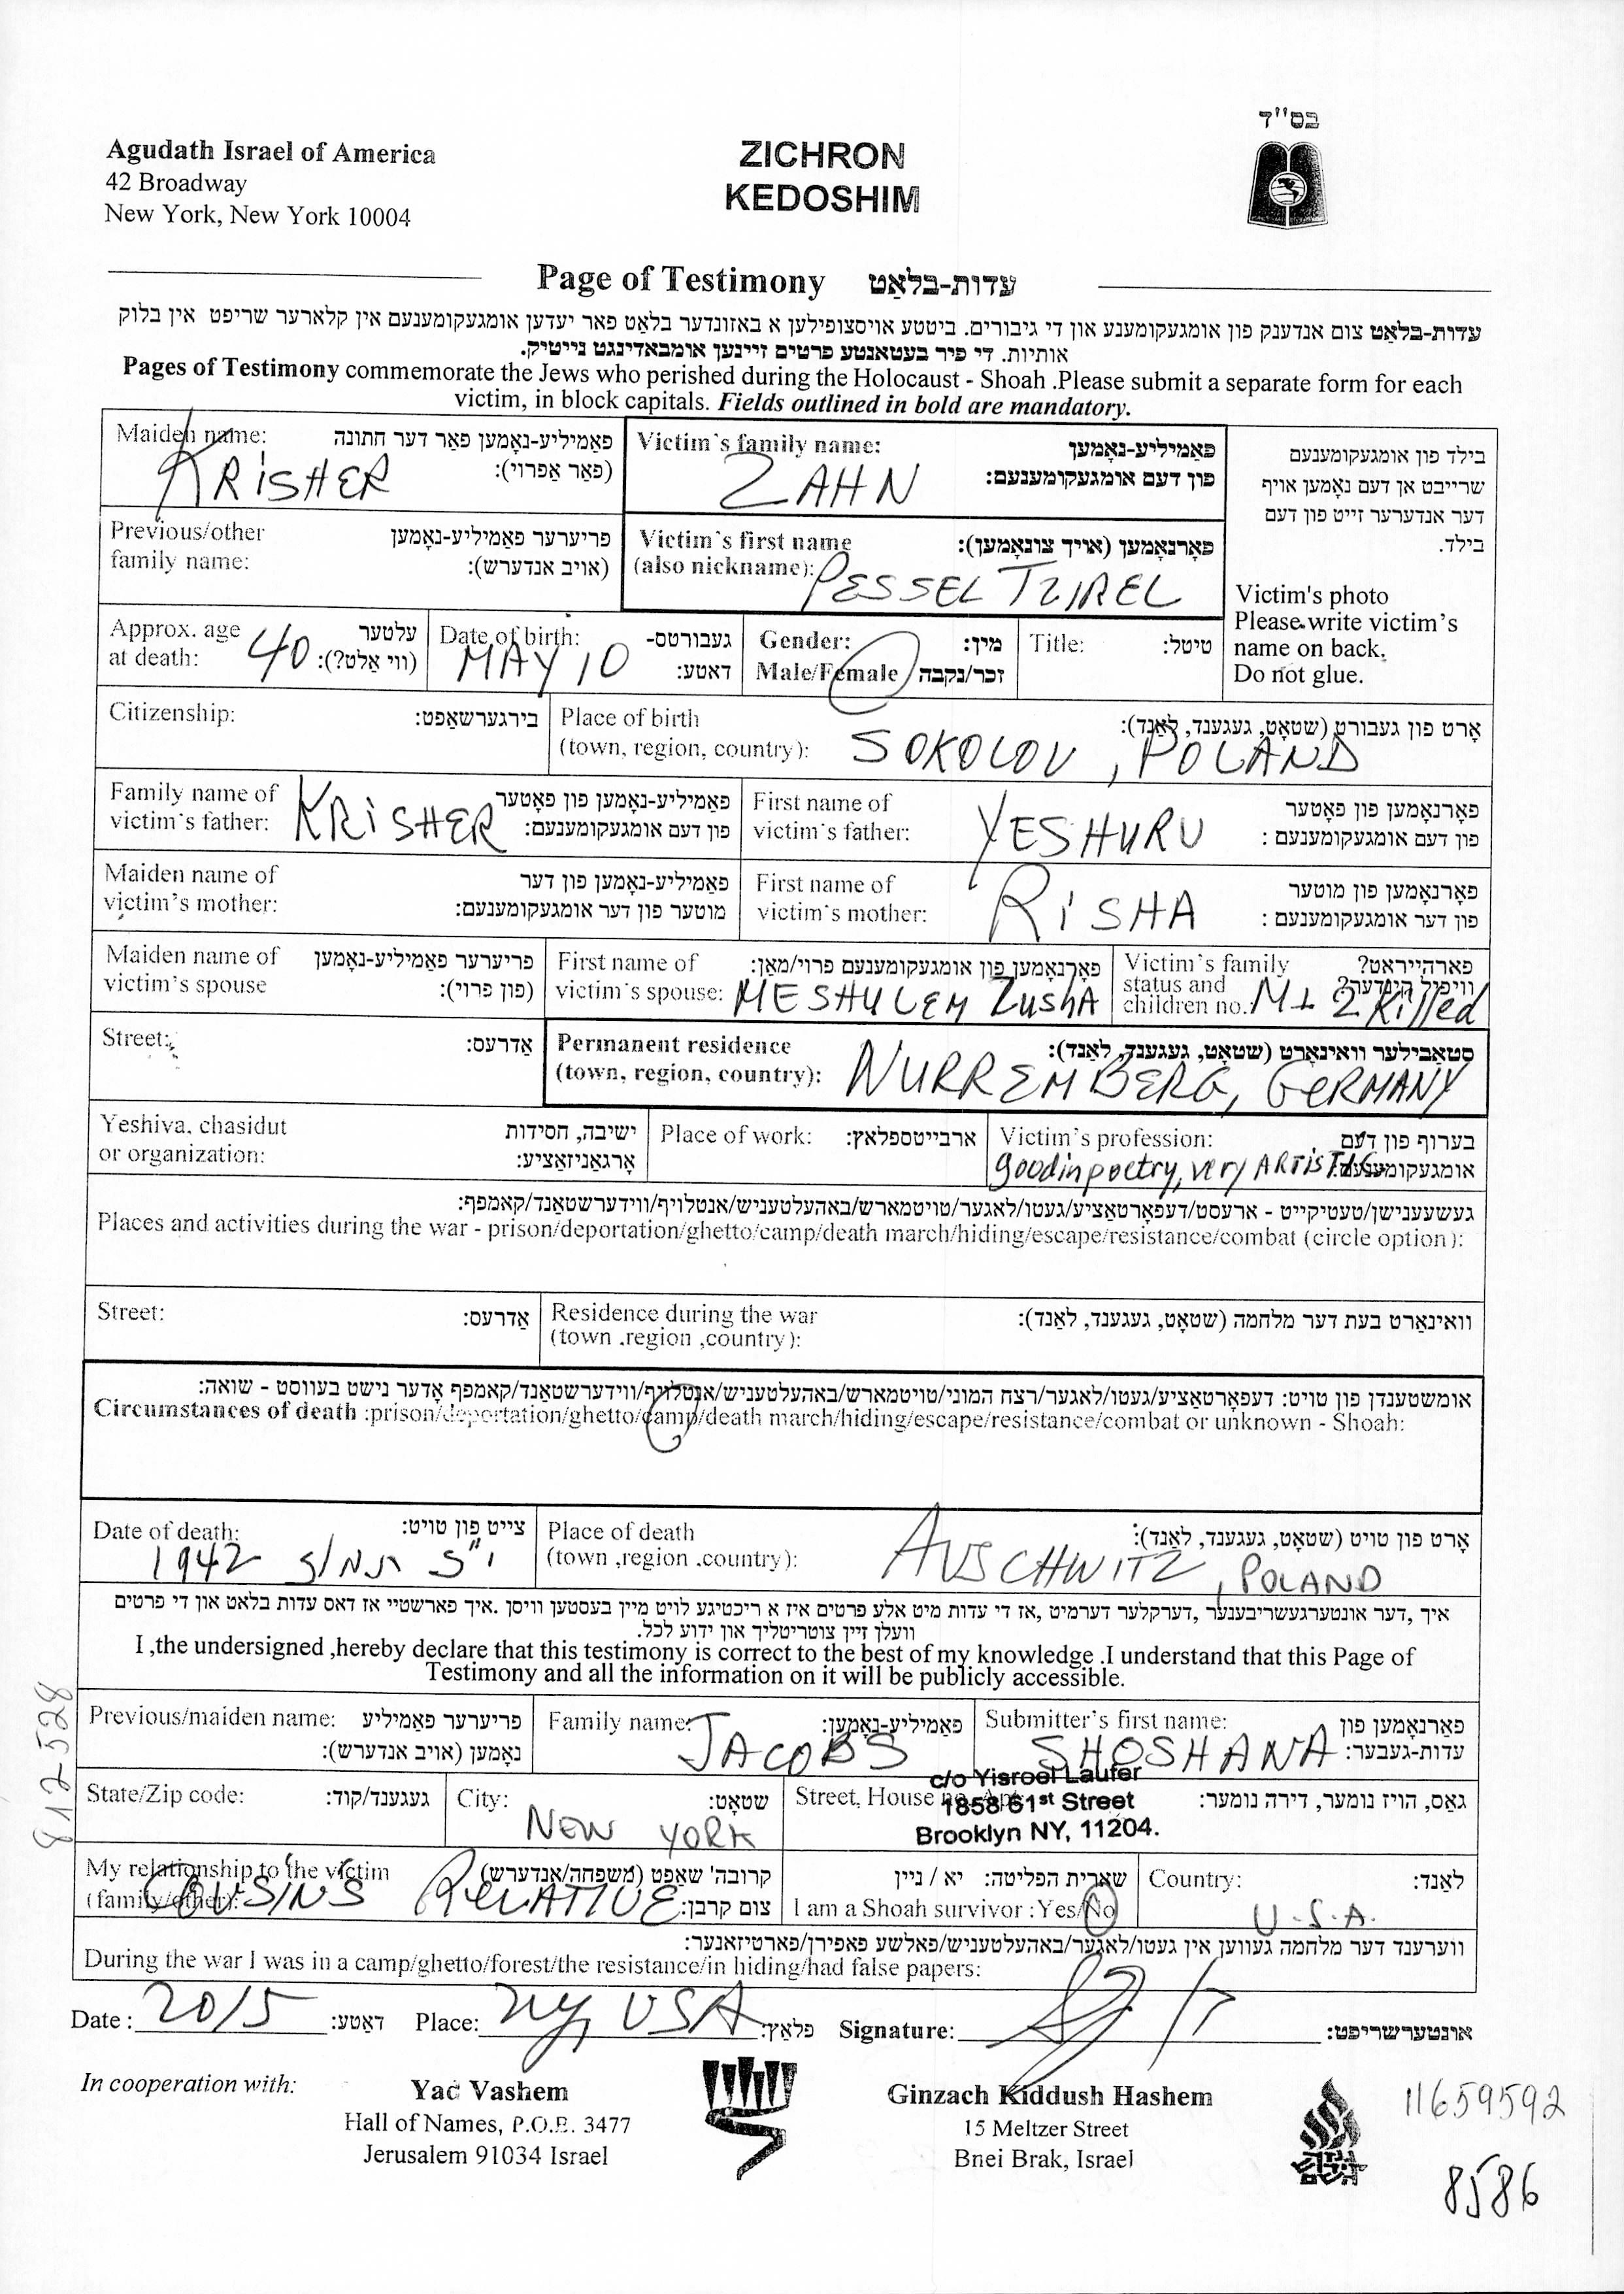 בס"ד
Agudath Israel of America
42 Broadway
New York, New York 10004
ZICHRON
KEDOSHIM
Page of Testimony עדות-בלאַט
עדות-בלאַט צום אנדענק פון אומגעקומענע און די גיבורים. ביטטע אויסצופילען א באזונדער בלאט פאר יעדען אומגעקומענעם אין קלארער שריפט אין בלוק
אותיות. די פיר בעטאנטע פרטים זיינען אומבאדינגט נייטיק.
Pages of Testimony commemorate the Jews who perished during the Holocaust - Shoah .Please submit a separate form for each
victim, in block capitals. Fields outlined in bold are mandatory.
Maiden name: פאַמיליע-נאָמען פאר דער חתונה
(פאר אפרוי):
KRISHER
Victim's family name: פאַמיליע-נאָמען
פון דעם אומגעקומענעם:
ZAHN
בילד פון אומגעקומענעם
שרייבט אן דעם נאָמען אויף
דער אנדערער זייט פון דעם
בילד.
Victim's photo
Please write victim's
name on back.
Do not glue.
Previous/other פריערער פאַמיליע-נאָמען
family name: (אויב אנדערש):
Victim's first name פאָרנאָמען (אויך צונאָמען):
(also nickname): PESSEL TZIREL
Approx. age עלטער
at death: 40 (ווי אַלט?):
Date of birth: געבורטס-
MAY 10 דאטע:
Gender: מין:
Male/Female זכר/נקבה
Title: טיטל:
Citizenship: בירגערשאַפט:
Place of birth אָרט פון געבורט (שטאָט, געגענד, לאַנד):
(town, region, country): SOKOLOV, POLAND
Family name of פאַמיליע-נאָמען פון פאָטער
victim's father: KRISHER פון דעם אומגעקומענעם:
First name of פאָרנאָמען פון פאָטער
victim's father: YESHURU פון דעם אומגעקומענעם :
Maiden name of פאַמיליע-נאָמען פון דער
victim's mother: מוטער פון דער אומגעקומענעם:
First name of פאָרנאָמען פון מוטער
victim's mother: RISHA פון דער אומגעקומענעם :
Maiden name of פריערער פאַמיליע-נאָמען
victim's spouse (פון פרוי):
First name of פאָרנאָמען פון אומגעקומענעם פרוי/מאַן:
victim's spouse: MESHULEM ZUSHA
Victim's family פארהייראט?
status and וויפיל קינדער?
children no. M+ 2 Killed
Street: אַדרעס:
Permanent residence סטאַבילער וואוינאָרט (שטאָט, געגענד, לאַנד):
(town, region, country): NURREMBERG, GERMANY
Yeshiva, chasidut ישיבה, חסידות
or organization: אָרגאַניזאַציע:
Place of work: ארבייטספלאַץ:
Victim's profession: בערוף פון דעם
אומגעקומענעם:
good in poetry, very ARTISTIC
געשעענישן/טעטיקייט - ארעסט/דעפאָרטאַציע/געטו/לאַגער/טויטמארש/באהעלטעניש/אנטלויף/ווידערשטאַנד/קאמפף:
Places and activities during the war - prison/deportation/ghetto/camp/death march/hiding/escape/resistance/combat (circle option):
Street: אַדרעס:
Residence during the war וואוינאַרט בעת דער מלחמה (שטאָט, געגענד, לאַנד):
(town .region ,country):
אומשטענדן פון טויט: דעפאָרטאַציע/געטו/לאגער/רצח המוני/טויטמארש/באהעלטעניש/אנטלויף/ווידערשטאַנד/קאמפף אָדער נישט בעוואוסט - שואה:
Circumstances of death :prison/deportation/ghetto/camp/death march/hiding/escape/resistance/combat or unknown - Shoah:
Date of death: צייט פון טויט:
1942 י"ב תמוז
Place of death אָרט פון טויט (שטאָט, געגענד, לאַנד):
(town ,region .country): AUSCHWITZ, POLAND
איך ,דער אונטערגעשריבענער ,דערקלער דערמיט ,אז די עדות מיט אלע פרטים איז א ריכטיגע לויט מיין בעסטען וויסן .איך פארשטיי אז דאס עדות בלאט און די פרטים
וועלן זיין צוטריטליך און ידוע לכל.
I ,the undersigned ,hereby declare that this testimony is correct to the best of my knowledge .I understand that this Page of
Testimony and all the information on it will be publicly accessible.
Previous/maiden name: פריערער פאַמיליע
נאָמען (אויב אנדערש):
Family name: פאַמיליע-נאָמען:
JACOBS
Submitter's first name: פאָרנאָמען פון
עדות-געבער:
SHOSHANA
State/Zip code: געגענד/קוד:
City: שטאָט:
NEW YORK
Street, House no., Apt. גאַס, הויז נומער, דירה נומער:
c/o Yisroel Laufer
1858 61st Street
Brooklyn NY, 11204.
My relationship to the victim קרובה'שאַפט (משפחה/אנדערש)
(family/other): צום קרבן:
COUSINS RELATIVE
שארית הפליטה: יא / ניין
I am a Shoah survivor :Yes/No
Country: לאַנד:
U.S.A.
ווערענד דער מלחמה געווען אין געטו/לאַגער/באהעלטעניש/פאלשע פאפירן/פארטיזאנער:
During the war I was in a camp/ghetto/forest/the resistance/in hiding/had false papers:
Date : 2015 דאַטע:
Place: NY, USA פלאַץ:
Signature: אונטערשריפט:
In cooperation with:
Yad Vashem
Hall of Names, P.O.B. 3477
Jerusalem 91034 Israel
Ginzach Kiddush Hashem
15 Meltzer Street
Bnei Brak, Israel
גנזך
קידוש
השם
11659592
8586
812528